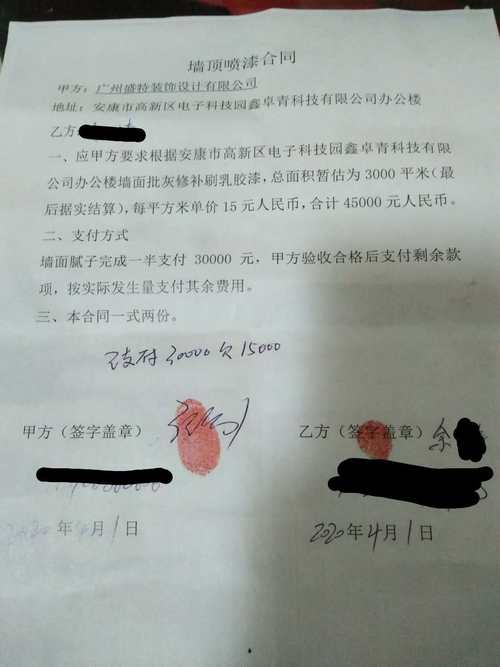 墙顶喷漆合同
甲方：广州盛特装饰设计有限公司
地址：安康市高新区电子科技园鑫卓青科技有限公司办公楼
乙方
一、应甲方要求根据安康市高新区电子科技园鑫卓青科技有限
公司办公楼墙面批灰修补刷乳胶漆，总面积暂估为3000平米（最
后据实结算），每平方米单价15元人民币，合计45000元人民币。
二、支付方式
墙面腻子完成一半支付 30000 元，甲方验收合格后支付剩余款
项，按实际发生量支付其余费用。
三、本合同一式两份。
支付30000欠15000
甲方（签字盖章） 乙方（签字盖章）余
2020年4月1日 2020年4月1日